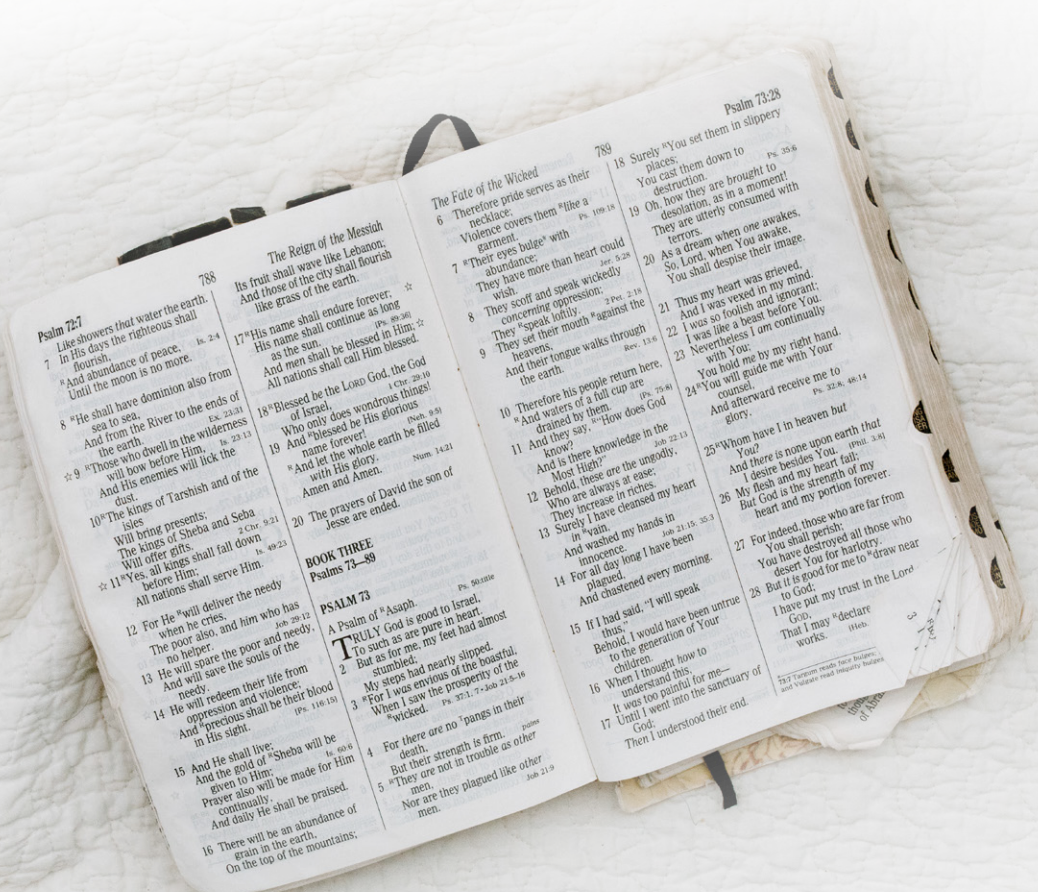 Psalm 72:7
788
The Reign of the Messiah
Like showers that water the earth.
7 In His days the righteous shall
flourish,
ᴿAnd abundance of peace, Is. 2:4
Until the moon is no more.
8 ᴿHe shall have dominion also from
sea to sea,
And from the River to the ends of
the earth. Ex. 23:31
☆9 ᴿThose who dwell in the wilderness
will bow before Him, Is. 23:13
And His enemies will lick the
dust.
10 ᴿThe kings of Tarshish and of the
isles
Will bring presents;
The kings of Sheba and Seba
Will offer gifts. 2 Chr. 9:21
☆11 ᴿYes, all kings shall fall down
before Him; Is. 49:23
All nations shall serve Him.
12 For He ᴿwill deliver the needy
when he cries,
The poor also, and him who has
no helper. Job 29:12
13 He will spare the poor and needy,
And will save the souls of the
needy.
14 He will redeem their life from
oppression and violence;
And ᴿprecious shall be their blood
in His sight. [Ps. 116:15]
15 And He shall live;
And the gold of ᴿSheba will be
given to Him; Is. 60:6
Prayer also will be made for Him
continually,
And daily He shall be praised.
16 There will be an abundance of
grain in the earth,
On the top of the mountains;
Its fruit shall wave like Lebanon;
And those of the city shall flourish
like grass of the earth.
17 ᴿHis name shall endure forever; ☆
His name shall continue as long
as the sun. [Ps. 89:36]
And men shall be blessed in Him; ☆
All nations shall call Him blessed.
18 ᴿBlessed be the LORD God, the God
of Israel, 1 Chr. 29:10
Who only does wondrous things!
19 And ᴿblessed be His glorious
name forever! [Neh. 9:5]
ᴿAnd let the whole earth be filled
with His glory. Num. 14:21
Amen and Amen.
20 The prayers of David the son of
Jesse are ended.
BOOK THREE
Psalms 73—89
PSALM 73
A Psalm of ᴿAsaph. Ps. 50:title
TRULY God is good to Israel,
To such as are pure in heart.
2 But as for me, my feet had almost
stumbled;
My steps had nearly slipped.
3 ᴿFor I was envious of the boastful,
When I saw the prosperity of the
ᴿwicked. Ps. 37:1, 7 • Job 21:5–16
4 For there are no ᵀpangs in their
death, pains
But their strength is firm.
5 ᴿThey are not in trouble as other
men,
Nor are they plagued like other
men. Job 21:9
The Fate of the Wicked
789
Psalm 73:28
6 Therefore pride serves as their
necklace;
Violence covers them ᴿlike a
garment. Ps. 109:18
7 ᴿTheir eyes bulge¹ with
abundance;
They have more than heart could
wish. Jer. 5:28
8 They scoff and speak wickedly
concerning oppression;
They ᴿspeak loftily. 2 Pet. 2:18
9 They set their mouth ᴿagainst the
heavens,
And their tongue walks through
the earth. Rev. 13:6
10 Therefore his people return here,
ᴿAnd waters of a full cup are
drained by them. [Ps. 75:8]
11 And they say, ᴿ“How does God
know?
And is there knowledge in the
Most High?” Job 22:13
12 Behold, these are the ungodly,
Who are always at ease;
They increase in riches.
13 Surely I have cleansed my heart
in ᴿvain,
And washed my hands in
innocence. Job 21:15; 35:3
14 For all day long I have been
plagued,
And chastened every morning.
15 If I had said, “I will speak
thus,”
Behold, I would have been untrue
to the generation of Your
children.
16 When I thought how to
understand this,
It was too painful for me—
17 Until I went into the sanctuary of
God;
Then I understood their end.
18 Surely ᴿYou set them in slippery
places;
You cast them down to
destruction. Ps. 35:6
19 Oh, how they are brought to
desolation, as in a moment!
They are utterly consumed with
terrors.
20 As a dream when one awakes,
So, Lord, when You awake,
You shall despise their image.
21 Thus my heart was grieved,
And I was vexed in my mind.
22 I was so foolish and ignorant;
I was like a beast before You.
23 Nevertheless I am continually
with You;
You hold me by my right hand.
24 ᴿYou will guide me with Your
counsel,
And afterward receive me to
glory. Ps. 32:8; 48:14
25 ᴿWhom have I in heaven but
You?
And there is none upon earth that
I desire besides You. [Phil. 3:8]
26 My flesh and my heart fail;
But God is the strength of my
heart and my portion forever.
27 For indeed, those who are far from
You shall perish;
You have destroyed all those who
desert You for harlotry.
28 But it is good for me to ᴿdraw near
to God;
I have put my trust in the Lord
GOD,
That I may ᴿdeclare
works. [Heb.
73:7 Targum reads face bulges;
and Vulgate read iniquity bulges
of Abra